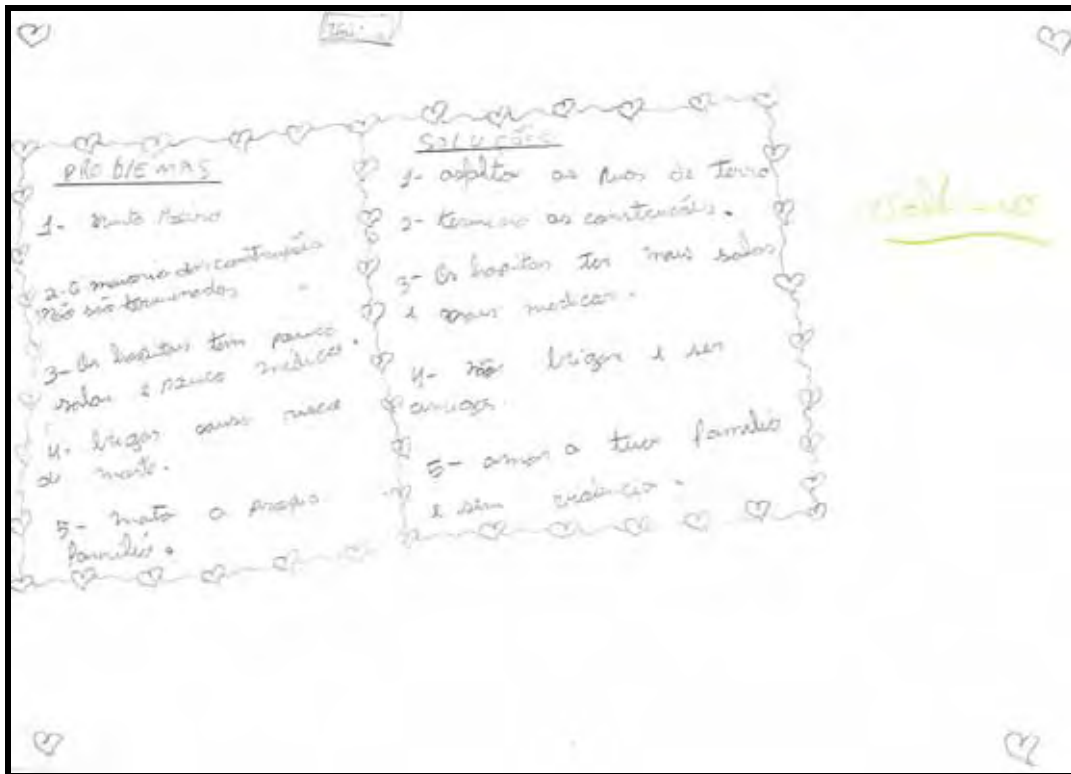 PROBLEMAS
1- Muito
2- a maioria das construções
não são terminadas
3- Os hospitas tem pouco
salas e pouco medicos.
4- brigas causa risco
de morte.
5- mata a propia
familia.
SOLUÇÕES
1- asfalta as ruas de terra
2- termina as construções.
3- Os hospitas ter mais salas
e mais medicos.
4- não brigar e ser
amigos.
5- amar a tua familia
e sem violência.